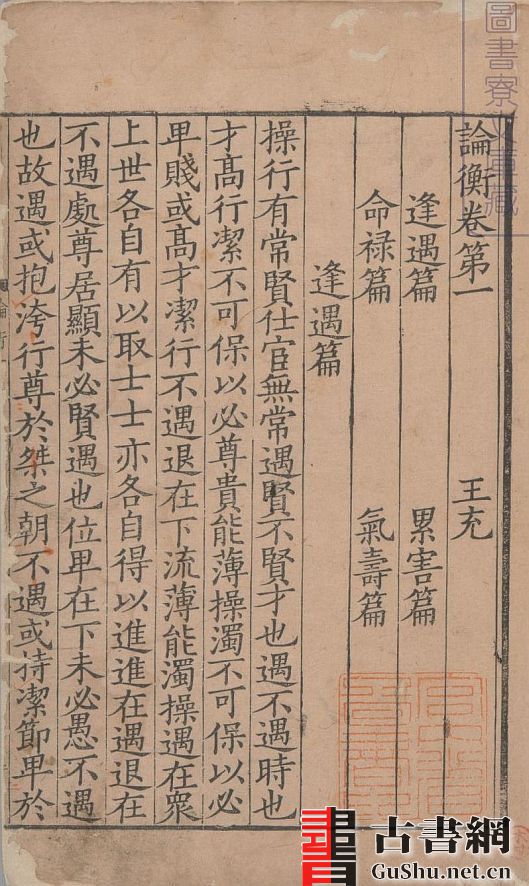 論衡卷第一 王充
逢遇篇 累害篇
命祿篇 氣壽篇
逢遇篇
操行有常賢仕宦無常遇賢不賢才也遇不遇時也
才髙行潔不可保以必尊貴能薄操濁不可保以必
卑賤或髙才潔行不遇退在下流薄能濁操遇在衆
上世各自有以取士士亦各自得以進進在遇退在
不遇處尊居顯未必賢遇也位卑在下未必愚不遇
也故遇或抱洿行尊於桀之朝不遇或持潔節卑於
圖書寮
藏
古書網
GuShu.net.cn